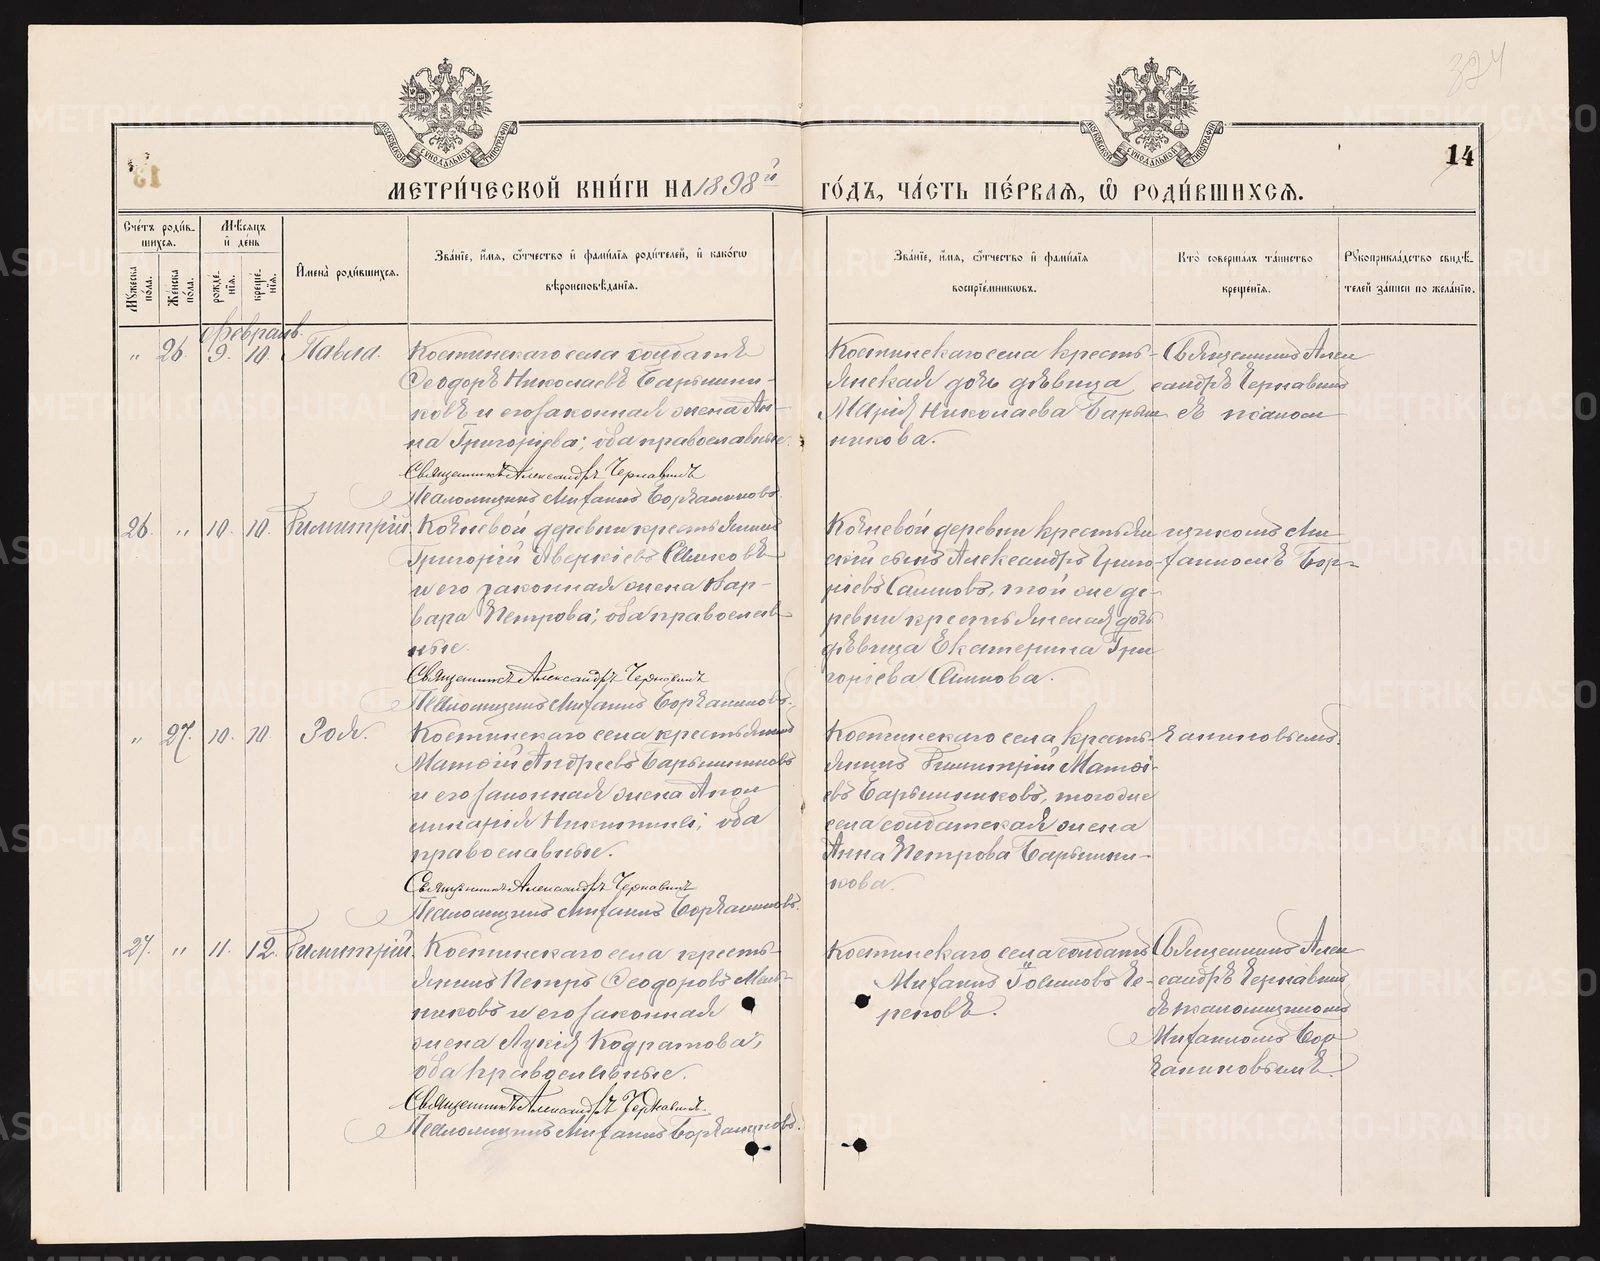 324
14
МЕТРИ́ЧЕСКОЙ КНИ́ГИ НА 1898й ГО́ДЪ, ЧА́СТЬ ПЕ́РВАЯ, Ѡ РОДИ́ВШИХСѦ.
Сче́тъ роди́вшихсѧ.
Мꙋжеска по́ла.
Же́нска по́ла.
Мѣ́сѧцъ и҆ де́нь
рожде́нїѧ.
креще́нїѧ.
И҆мена̀ роди́вшихсѧ.
Зва́нїе, и҆́мѧ, ѻ҆́тчество и҆ фами́лїѧ роди́телей, и҆ како́гѡ
вѣроисповѣ́данїѧ.
Зва́нїе, и҆́мѧ, ѻ҆́тчество и҆ фами́лїѧ
воспрїе́мникѡвъ.
Кто̀ соверша́лъ та́инство
креще́нїѧ.
Рꙋкоприкла́дство свидѣ́-
телей за́писи по жела́нїю.
Февраль.
" 26. 9. 10. Павла.
Костинскаго села солдатъ
Ѳеодоръ Николаевъ Барышни-
ковъ и его законная жена Ан-
на Григорьева; оба православные.
Священникъ Александръ Чернавинъ
Псаломщикъ Митаилъ Борчаниновъ.
Костинскаго села кресть-
янская дочь дѣвица
Марія Николаева Барыш
никова.
Священникъ Алек
сандръ Чернавинъ
съ псалом
26. " 10. 10. Димитрій.
Кочневой деревни крестьянинъ
Григорій Аверкіевъ Самковъ
и его законная жена Вар-
вара Петрова; оба православ-
ные.
Священникъ Александръ Чернавинъ
Псаломщикъ Митаилъ Борчаниновъ.
Кочневой деревни крестьян
скій сынъ Александръ Григо-
ріевъ Самковъ, той же де-
ревни крестьянская дочь
дѣвица Екатерина Гри
горіева Самкова.
щикомъ Ми
таиломъ Бор-
" 27. 10. 10. Зоя.
Костинскаго села крестьянинъ
Матѳій Андреевъ Барышниковъ
и его законная жена Апол
линарія Никитина; оба
православные.
Священникъ Александръ Чернавинъ
Псаломщикъ Митаилъ Борчаниновъ.
Костинскаго села кресть-
янинъ Димитрій Матѳі-
евъ Барышниковъ, того же
села солдатская жена
Анна Петрова Барышни-
кова.
чаниновымъ.
27. " 11. 12. Димитрій.
Костинскаго села кресть-
янинъ Петръ Ѳеодоровъ Мель-
никовъ и его законная
жена Лукія Кодратова;
оба православные.
Священникъ Александръ Чернавинъ.
Псаломщикъ Митаилъ Борчаниновъ.
Костинскаго села солдатъ
Митаилъ Іосифовъ Че-
реповъ.
Священникъ Алек
сандръ Чернавинъ
съ псаломщикомъ
Митаиломъ Бор
чаниновымъ.